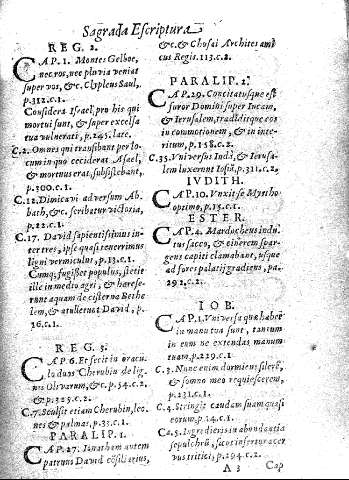 Sagrada Escriptura
REG. 2.
CAP. 1. Montes Gelboe,
nec ros, nec pluvia veniat
super vos, &c. Clypeus Saul,
p. 312. c. 1.
Considera Israel, pro his qui
mortui sunt, & super excelsa
tua vulnerati, p. 245. late.
C. 2. Omnes qui transibant per lo-
cum in quo ceciderat Asael,
& mortuus erat, subsistebant,
p. 300. c. 1.
C. 12. Dimicavi adversum
bath, &c. scribatur victoria,
p. 22. c. 1.
C. 17. David sapientissimus in-
ter tres, ipse quasi tenerrimus
ligni vermiculus, p. 13. c. 1.
fugisset populus, stetit
ille in medio agri, & hause-
runt aquam de cisterna Bethe
lem, & attulerunt David, p.
16. c. 1.
REG. 3.
CAP. 6. Et fecit in oracu-
lo duos Cherubin de lig-
nis Olivarum, &c. p. 54. c. 2,
& p. 325. c. 2.
C. 7. Sculpsit etiam Cherubin, leo-
nes & palmas, p. 33. c. 1.
PARALIP. 1.
CAP. 27. Ionathan autem
patruus David cõsiliarius,
&c. & Chusai Arachites ami
cus Regis. 113. c. 2.
PARALIP. 2.
CAP. 29. Concitatus que est
furor Domini super Iudam,
& Ierusalem, tradidit que eos
in commotionem, & in inte-
ritum, p. 158. c. 2.
C. 35. Vniversus Iudá, & Ierusa-
lem luxerunt Iosiã, p. 311. c. 2,
IVDITH.
CAP. 10. Vnxit se Myrtho
optimo, p. 15. c. 1.
ESTER.
CAP. 4. Mardocheus indu-
tus sacco, & cinerem spar-
gens capiti clamabat, usque
ad fores palatij gradiens, pa.
292. c. 2.
IOB.
CAP. 1. Vniversa quæ habet
in manu tua sunt, tantum
in eum ne extendas manum
tuam, p. 229. c. 1
C. 3. Nunc enim dormiens silerẽ,
& somno meo requiescerem,
p. 231. c. 1.
C. 4. Stringit caudam suam quasi
p. 14. c. 1.
Ca. 5. Ingredieris in abundantia
sepulchrũ, sicut infertur acer
vus tritici, p. 294. c. 2.
A 3 Cap